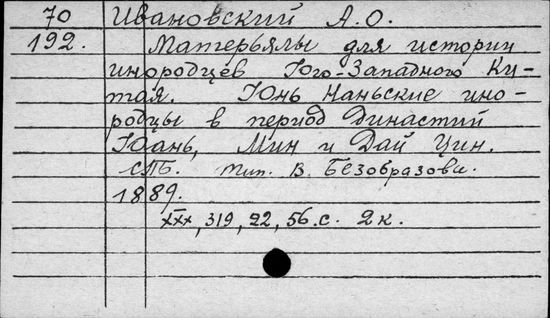 70 Ивановский А.О.
192. Матерьялы для истории
инородцев Юго-Западного Ки-
тая. Юнь Наньские ино-
родцы в период Династий
Юань, Мин и Дай Цин.
СПБ. тип. В. Безобразова.
1889.
XXX, 319, 22, 56.с. 2к.